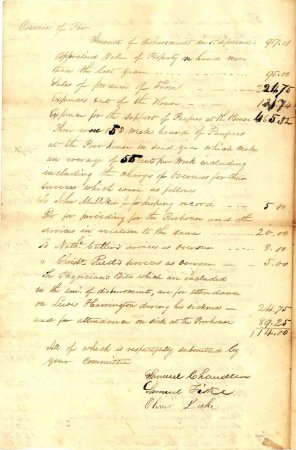 Overseer of Poor
Amount of disbursements in
Appraised Value of Property on hand more
than the last year 90.00
Sales of produce of Farm 22475
Expenses out of the House
Expenses for the support of Paupers at the House 465.52
There were 5 Week board of Paupers
at the Poorhouse in said year which makes
an average of 55 cents per Week including
including the charge of Overseers for their
services which were as follows
To John Mulliken for keeping record 5 00
Do for providing for the Poorhouse and other
services in relation to the same 20.00
To Nathl Cutlers services as overseer 8.00
" Christr Reeds services as overseer 5.00
The Physicians Bills which are included
in the amt of disbursements, are for attendance
on Harrington during his sickness 24.75
and for attendance on sick at the Poorhouse 89.25
114.00
All of which is respectfully submitted by
your Committee
Samuel Chandler
Samuel Fiske
Oliver Locke